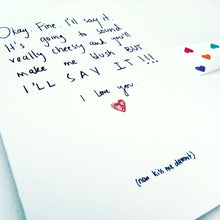 Okay. Fine. I'll say it.
It's going to sound
really cheesy and you'll
make me blush BUT
I'LL SAY IT!!!
I love you
(now kiss me dammit)